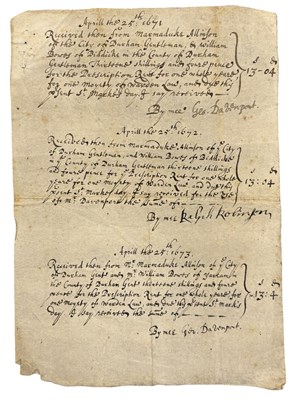 Aprill the 25th 1671
Received then from Marmaduke Allinson
of the City of Durham Gentleman, & William
Bowes of Biddicke in the County of Durham
Gentleman Thirteene shillings and foure pence
for the Prescription Rent for one whole yeare
for one Moyety of Warden Law, and due thy
present St. Markes day I say received
s d
13-04
By mee Geo: Davenport.
Aprill the 25th 1672.
Received then from Marmaduke Allinson of ye City
of Durham Gentleman, and William Bowes of Biddicke
in ye County of Durham Gent thirteene shillings
and foure pence for ye Prescription Rent for one whole
yeare for one Moyety of Warden Law and due thy
present St. Markes day I say received for the Use
of Mr. Davenport the sume of
s d
13:04
By mee Ralph Robinson
Aprill the 25th 1673
Received then from Mr. Marmaduke Allinson of ye City
of Durham Gent and Mr. William Bowes of
the County of Durham Gent thirteene shillings and foure
pence for the Prescription Rent for one whole yeare for
one Moyety of Warden Law and due thy present St. Markes
day I say received the sume of
s d
13:4
By mee Geo: Davenport.